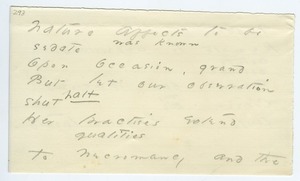 293
Nature affects to be
sedate
was known
Upon Occasion, grand
But let our observation
shut
halt
Her practices extend
qualities
to Necromancy and the